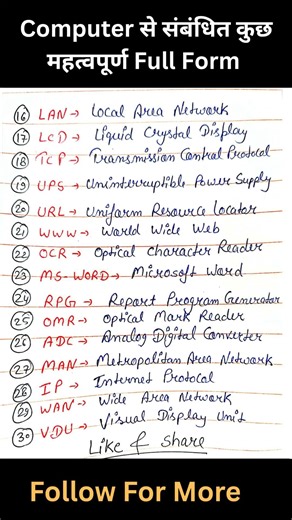 Computer से संबंधित कुछ
महत्वपूर्ण Full Form
16 LAN → Local Area Network
17 LCD → Liquid Crystal Display
18 TCP → Transmission Control Protocol
19 UPS → Uninterruptible Power Supply
20 URL → Uniform Resource Locator
21 WWW → World Wide Web
22 OCR → Optical Character Reader
23 MS-WORD → Microsoft Word
24 RPG → Report Program Generator
25 OMR → Optical Mark Reader
26 ADC → Analog Digital Converter
27 MAN → Metropolitan Area Network
28 IP → Internet Protocal
29 WAN → Wide Area Network
30 VDU → Visual Display Unit
Like & Share
Follow For More